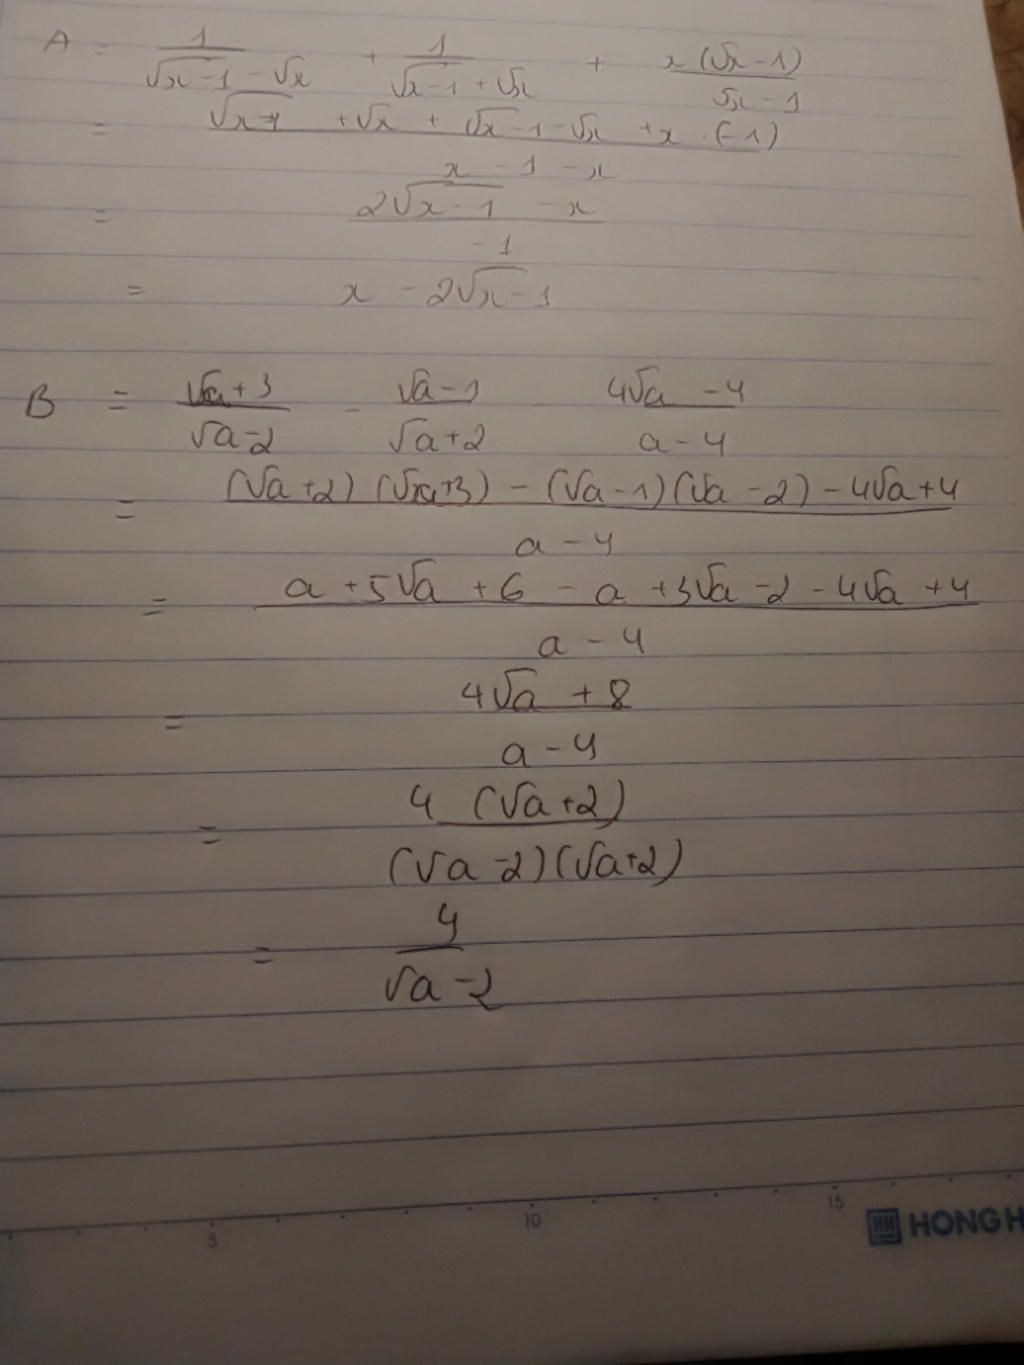 A = 1/(√(x-1) - √x) + 1/(√(x-1) + √x) + x(√x - 1)/(√x - 1)
= (√(x-1) + √x + √(x-1) - √x + x · (-1))/(x - 1 - x)
= (2√(x-1) - x)/(-1)
= x - 2√(x-1)
B = (√a + 3)/(√a - 2) - (√a - 1)/(√a + 2) - (4√a - 4)/(a - 4)
= ((√a + 2)(√a + 3) - (√a - 1)(√a - 2) - 4√a + 4)/(a - 4)
= (a + 5√a + 6 - a + 3√a - 2 - 4√a + 4)/(a - 4)
= (4√a + 8)/(a - 4)
= 4(√a + 2)/((√a - 2)(√a + 2))
= 4/(√a - 2)
5 10 15
HH HONG H